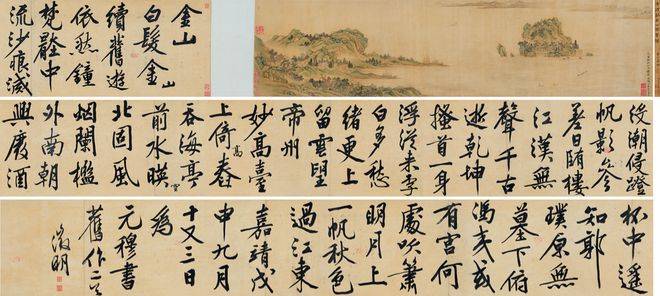 金山
白髮金山
續舊遊
依然鐘
梵壓中
流沙痕滅
沒潮侵蹬
帆影參
差日墮樓
江漢無
聲千古
逝乾坤
搔首一身
浮從來李
白多愁
緒更上
留雲望
帝州
妙高臺
上倚高舂
吞海亭
前水暎空
北固風
烟闌檻
外南朝
興廢酒
杯中遙
知郭
璞原無
墓下俯
馮夷或
有宮何
處吹簫
明月上
一帆秋色
過江東
嘉靖戊
申九月
十又三日
為
元穆書
舊作二首
徵明